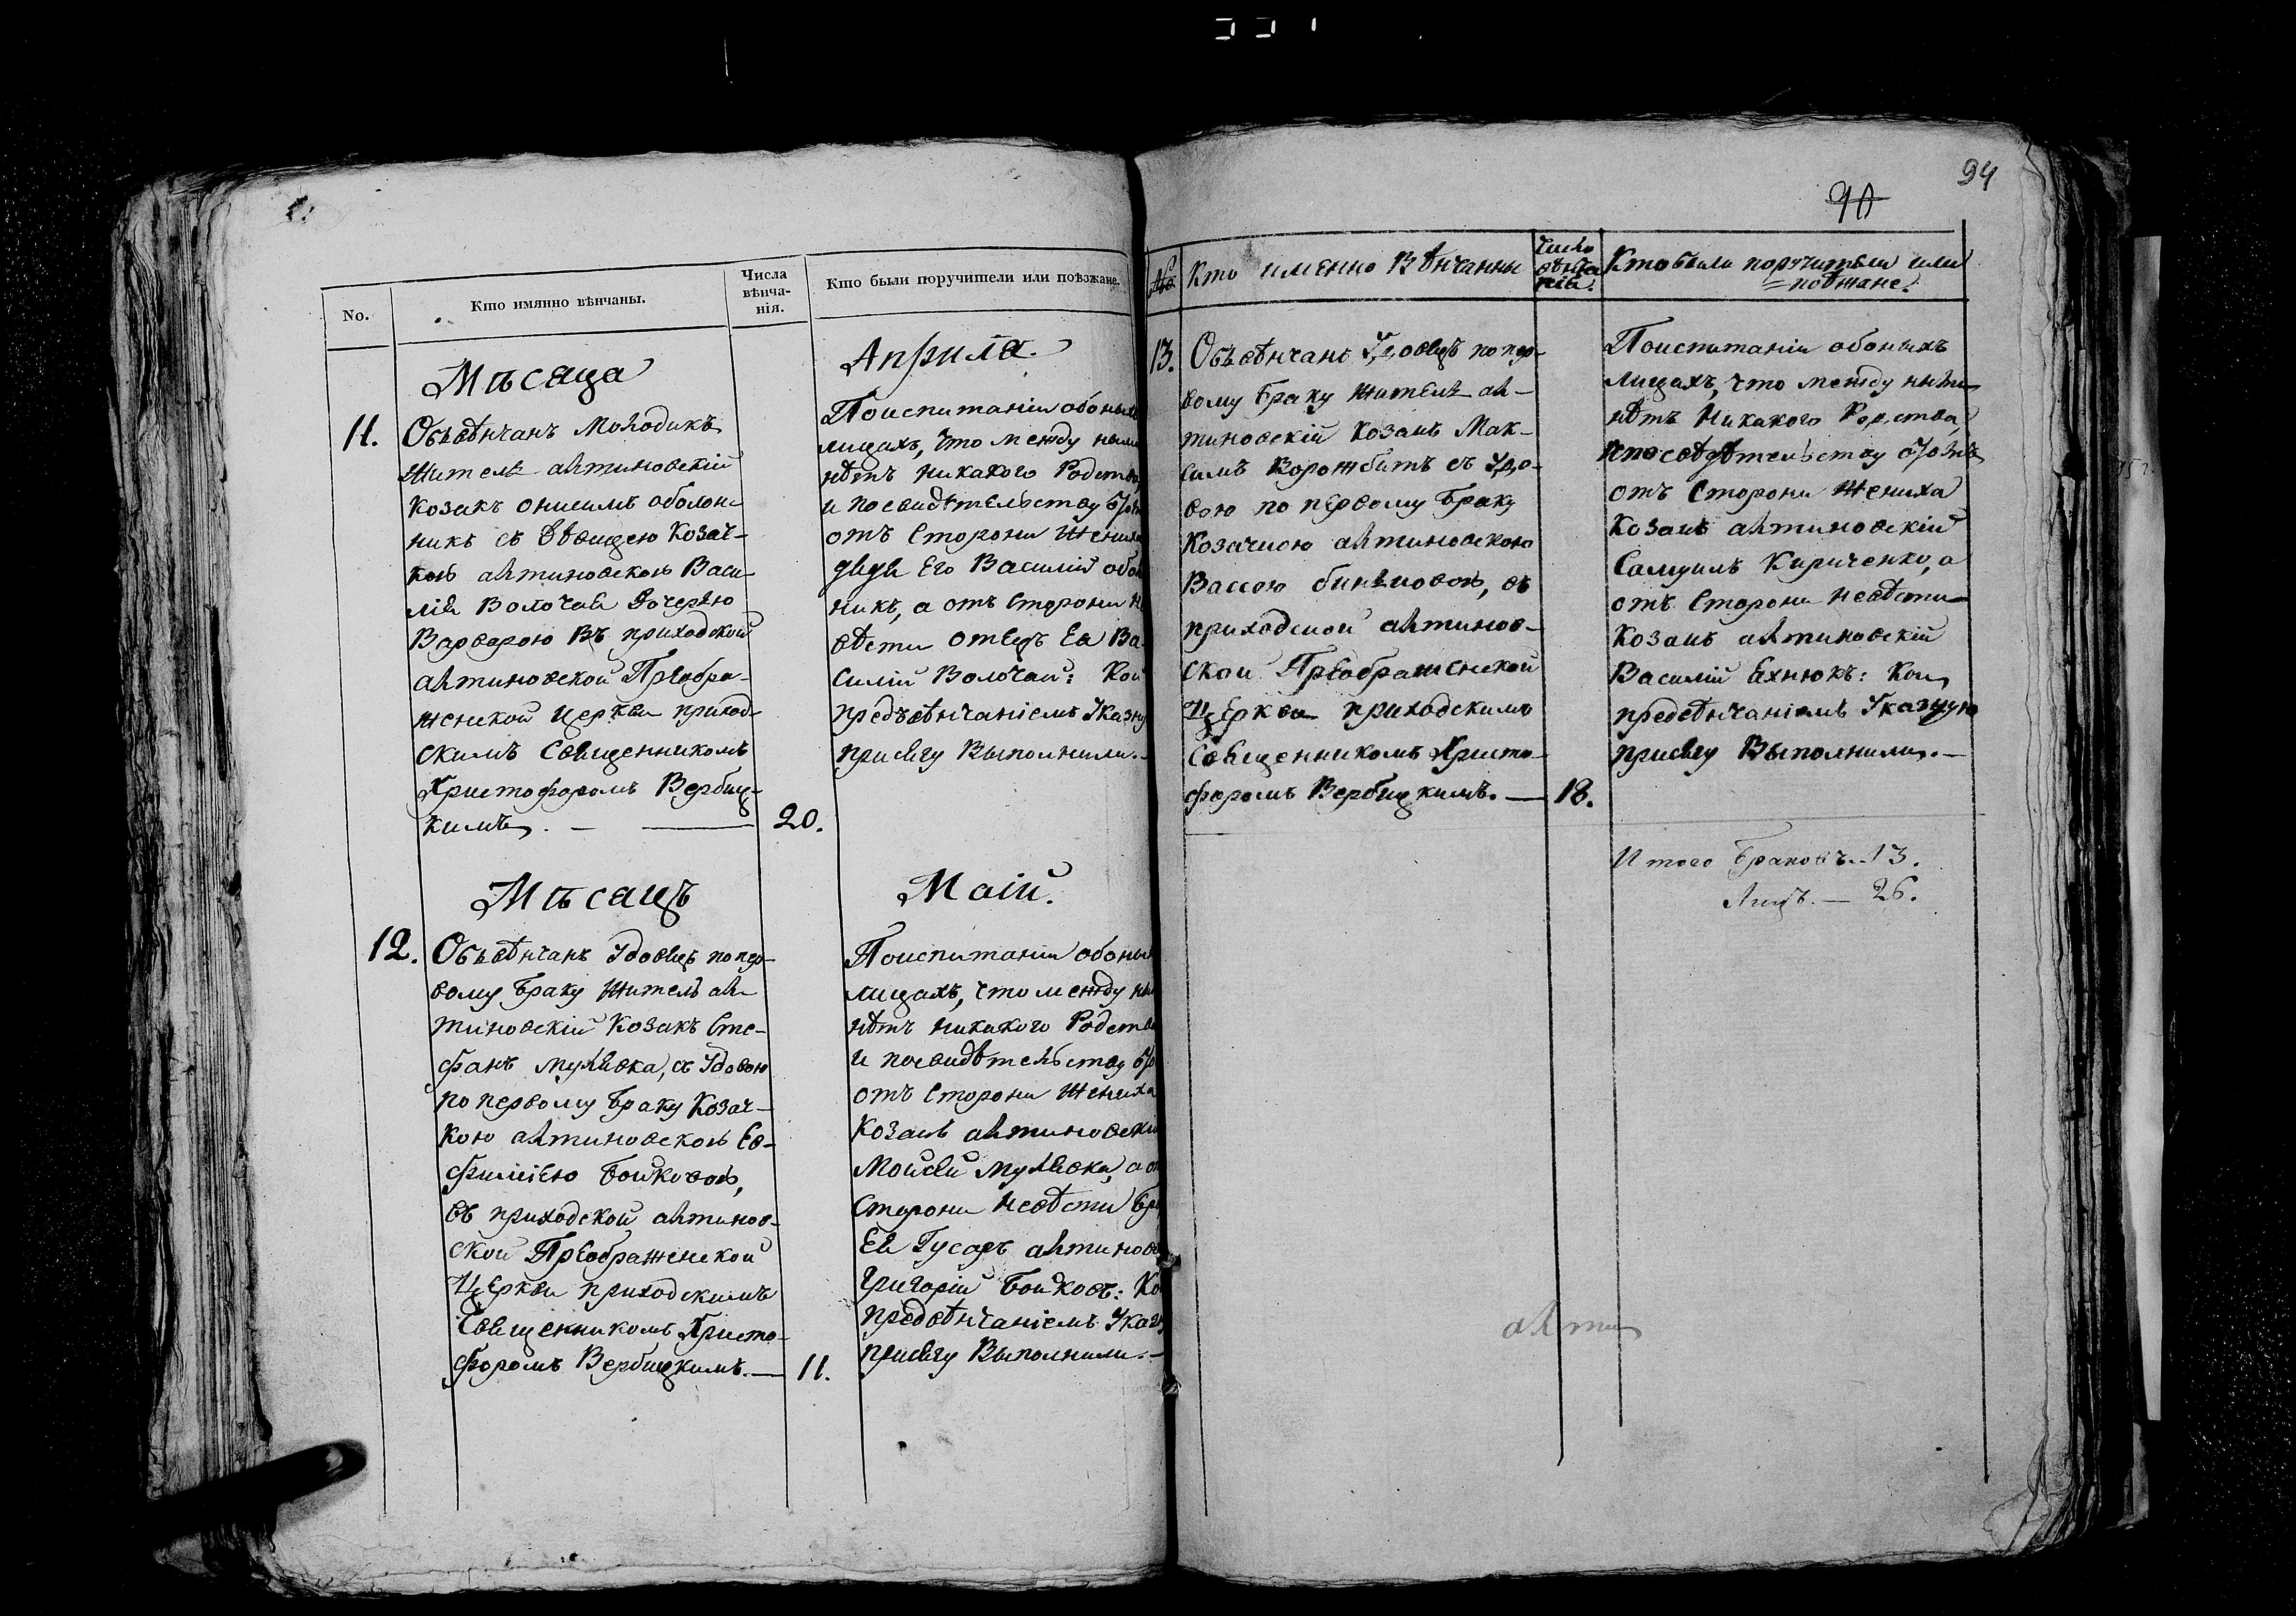 94
90
No.
Кто имянно вѣнчаны.
Числа
вѣнча-
нія.
Кто были поручители или поѣзжане.
Мѣсяца
Априля.
11. Обвѣнчанъ Молодикъ
Житель алтиновскій
Козакъ онисимъ оболон-
никъ съ дѣвицею Козач-
кою алтиновскою Васи-
лія Волочая дочерью
Варварою Въ приходской
алтиновской Преобра-
женской церкви приход-
скимъ Священникомъ
Христофоромъ Вербиц-
кимъ. — 20.
Поиспитаніи обоныхъ
лицахъ, что между ними
нѣтъ никакого Родства
и посвидѣтельству
отъ Сторони Жениха
дядя Его Василій обол
никъ, а отъ Сторони Не
вѣсти отецъ Ея Ва-
силій Волочай: Кои
предъвѣнчаніемъ Указну
присягу Выполнили. —
Мѣсяцъ
Маій.
12. Обвѣнчанъ Удовецъ попер-
вому Браку Житель ал-
тиновскій Козакъ Сте-
фанъ мулявка, съ Удовою
по первому Браку Козач-
кою алтиновскою Ев-
фиміею Бойковою,
въ приходской алтинов-
ской Преображенской
Церкви приходскимъ
Священникомъ Христо-
форомъ Вербицкимъ. — 11.
Поиспитаніи обоных
лицахъ, что между ни
нѣтъ никакого Родства
и посвидѣтельству
отъ Сторони Жениха
Козакъ алтиновски
Мойсей мулявка, а от
Сторони Невѣсти Бра
Ея Гусаръ алтинов
Григорій Бойковъ: Ко
предвѣнчаніемъ Указ
присягу Выполнили. —
№
Кто именно Вѣнчанны
Число
вѣнча
нія.
Кто были поручители или
поѣжане.
13. Обвѣнчанъ Удовецъ попер-
вому браку житель ал-
тиновскій Козакъ Мак-
симъ Ворожбитъ съ Удо-
вою по первому Браку
Козачкою алтиновскою
Вассою, въ
приходской алтинов-
ской Преображенской
Церкви приходскимъ
Священникомъ Христо-
форомъ Вербицкимъ. — 18.
Поиспитаніи обоныхъ
лицахъ, что между ними
нѣтъ Никакого Родства,
и посвѣдѣтельству
отъ Сторони Жениха
Козакъ алтиновскій
Самуилъ Кириченко, а
отъ Сторони Невѣсти
Козакъ алтиновскій
Василій Яхнюкъ: Кои
предвѣнчаніемъ Указную
присягу Выполнили. —
Итого Браковъ. 13.
Лицъ. — 26.
алти